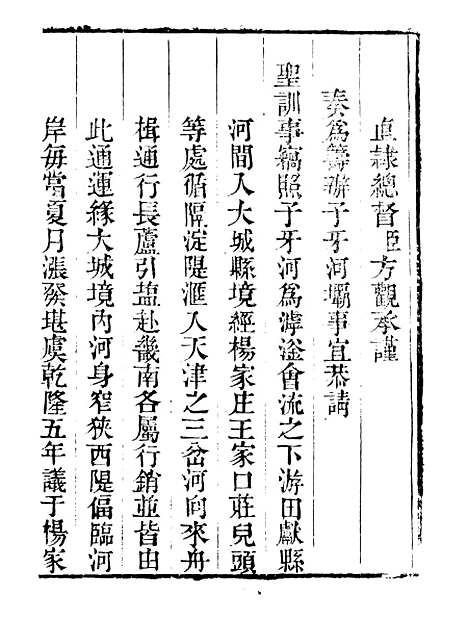 直隸總督臣方觀承謹
奏爲籌辦子牙河壩事宜恭請
聖訓事竊照子牙河爲滹滏會流之下游田獻縣
河間入大城縣境經楊家庄王家口莊兒頭
等處循隔淀隄滙入天津之三岔河向來舟
楫通行長蘆引塩赴畿南各屬行銷並皆由
此通運緣大城境內河身窄狹西隄偪臨河
岸每當夏月漲發堪虞乾隆五年議于楊家